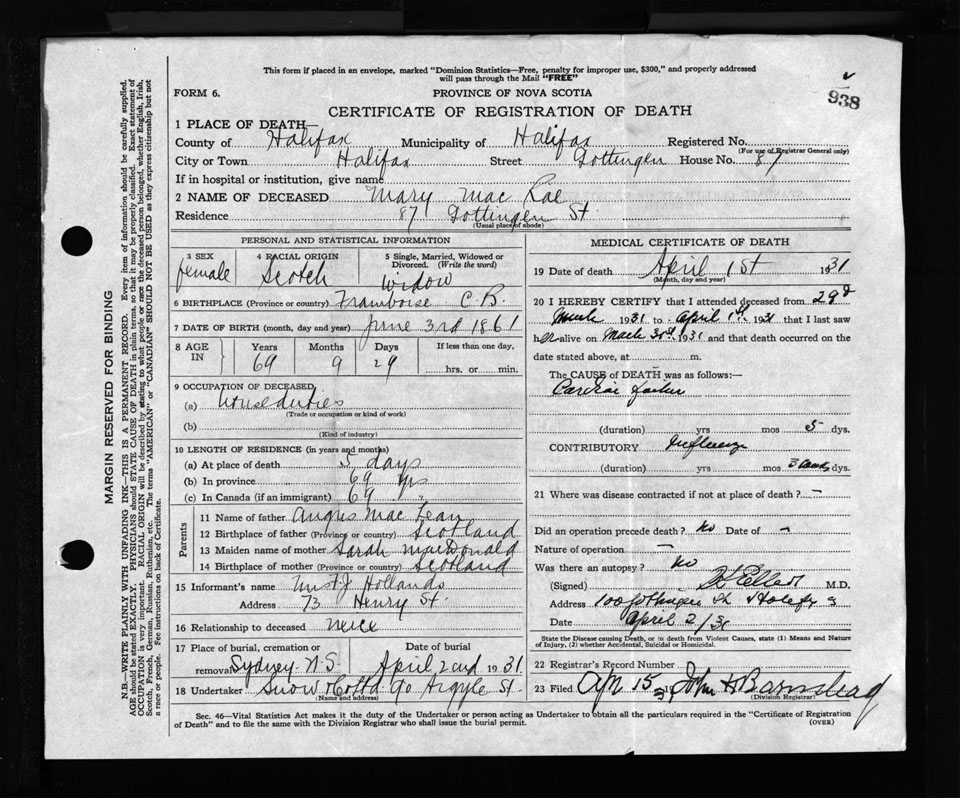 This form if placed in an envelope, marked "Dominion Statistics—Free, penalty for improper use, $300," and properly addressed
will pass through the Mail "FREE"
938
FORM 6.
PROVINCE OF NOVA SCOTIA
CERTIFICATE OF REGISTRATION OF DEATH
1 PLACE OF DEATH—
County of Halifax Municipality of Halifax Registered No.
(For use of Registrar General only)
City or Town Halifax Street Gottingen House No. 87
If in hospital or institution, give name
2 NAME OF DECEASED Mary Mac Rae
Residence 87 Gottingen St.
(Usual place of abode)
PERSONAL AND STATISTICAL INFORMATION
3 SEX female
4 RACIAL ORIGIN Scotch
5 Single, Married, Widowed or Divorced. (Write the word) Widow
6 BIRTHPLACE (Province or country) Framboise C B.
7 DATE OF BIRTH (month, day and year) June 3rd 1861
8 AGE IN Years 69 Months 9 Days 29 If less than one day, hrs. or min.
9 OCCUPATION OF DECEASED
(a) House duties
(Trade or occupation or kind of work)
(b)
(Kind of industry)
10 LENGTH OF RESIDENCE (in years and months)
(a) At place of death 5 days
(b) In province 69 yrs
(c) In Canada (if an immigrant) 69 "
Parents
11 Name of father Angus Mac Lean
12 Birthplace of father (Province or country) Scotland
13 Maiden name of mother Sarah MacDonald
14 Birthplace of mother (Province or country) Scotland
15 Informant's name Hollands
Address 73 Henry St.
16 Relationship to deceased neice
17 Place of burial, cremation or removal Sydney N.S. Date of burial April 2nd 1931
18 Undertaker Snow Co Argyle St.
(Name and address)
MEDICAL CERTIFICATE OF DEATH
19 Date of death April 1st 1931
(Month, day and year)
20 I HEREBY CERTIFY that I attended deceased from 29
March 1931 to April 1st 1931 that I last saw
h alive on March 1931 and that death occurred on the
date stated above, at m.
The CAUSE of DEATH was as follows:
Cardiac failure
(duration) yrs mos 5 dys.
CONTRIBUTORY Influenza
(duration) yrs mos 3 dys.
21 Where was disease contracted if not at place of death? -
Did an operation precede death? No Date of -
Nature of operation -
Was there an autopsy? No
(Signed) M.D.
Address 100 Gottingen St Halifax
Date April 2/31
State the Disease causing Death, or in death from Violent Causes, state (1) Means and Nature
of Injury, (2) whether Accidental, Suicidal or Homicidal.
22 Registrar's Record Number
23 Filed Apr 15 31 John H Barnstead
(Division Registrar)
Sec. 46—Vital Statistics Act makes it the duty of the Undertaker or person acting as Undertaker to obtain all the particulars required in the "Certificate of Registration
of Death" and to file the same with the Division Registrar who shall issue the burial permit.
(OVER)
MARGIN RESERVED FOR BINDING
N.B.—WRITE PLAINLY WITH UNFADING INK—THIS IS A PERMANENT RECORD. Every item of information should be carefully supplied.
AGE should be stated EXACTLY. PHYSICIANS should STATE CAUSE OF DEATH in plain terms, so that it may be properly classified. Exact statement of
OCCUPATION is very important. RACIAL ORIGIN will be described by stating to what people or race the deceased person belonged, whether English, Irish,
Scotch, French, German, Russian, Ruthenian, etc. The terms "AMERICAN" or "CANADIAN" SHOULD NOT BE USED as they express citizenship but not
a race or people. Fee instructions on back of Certificate.